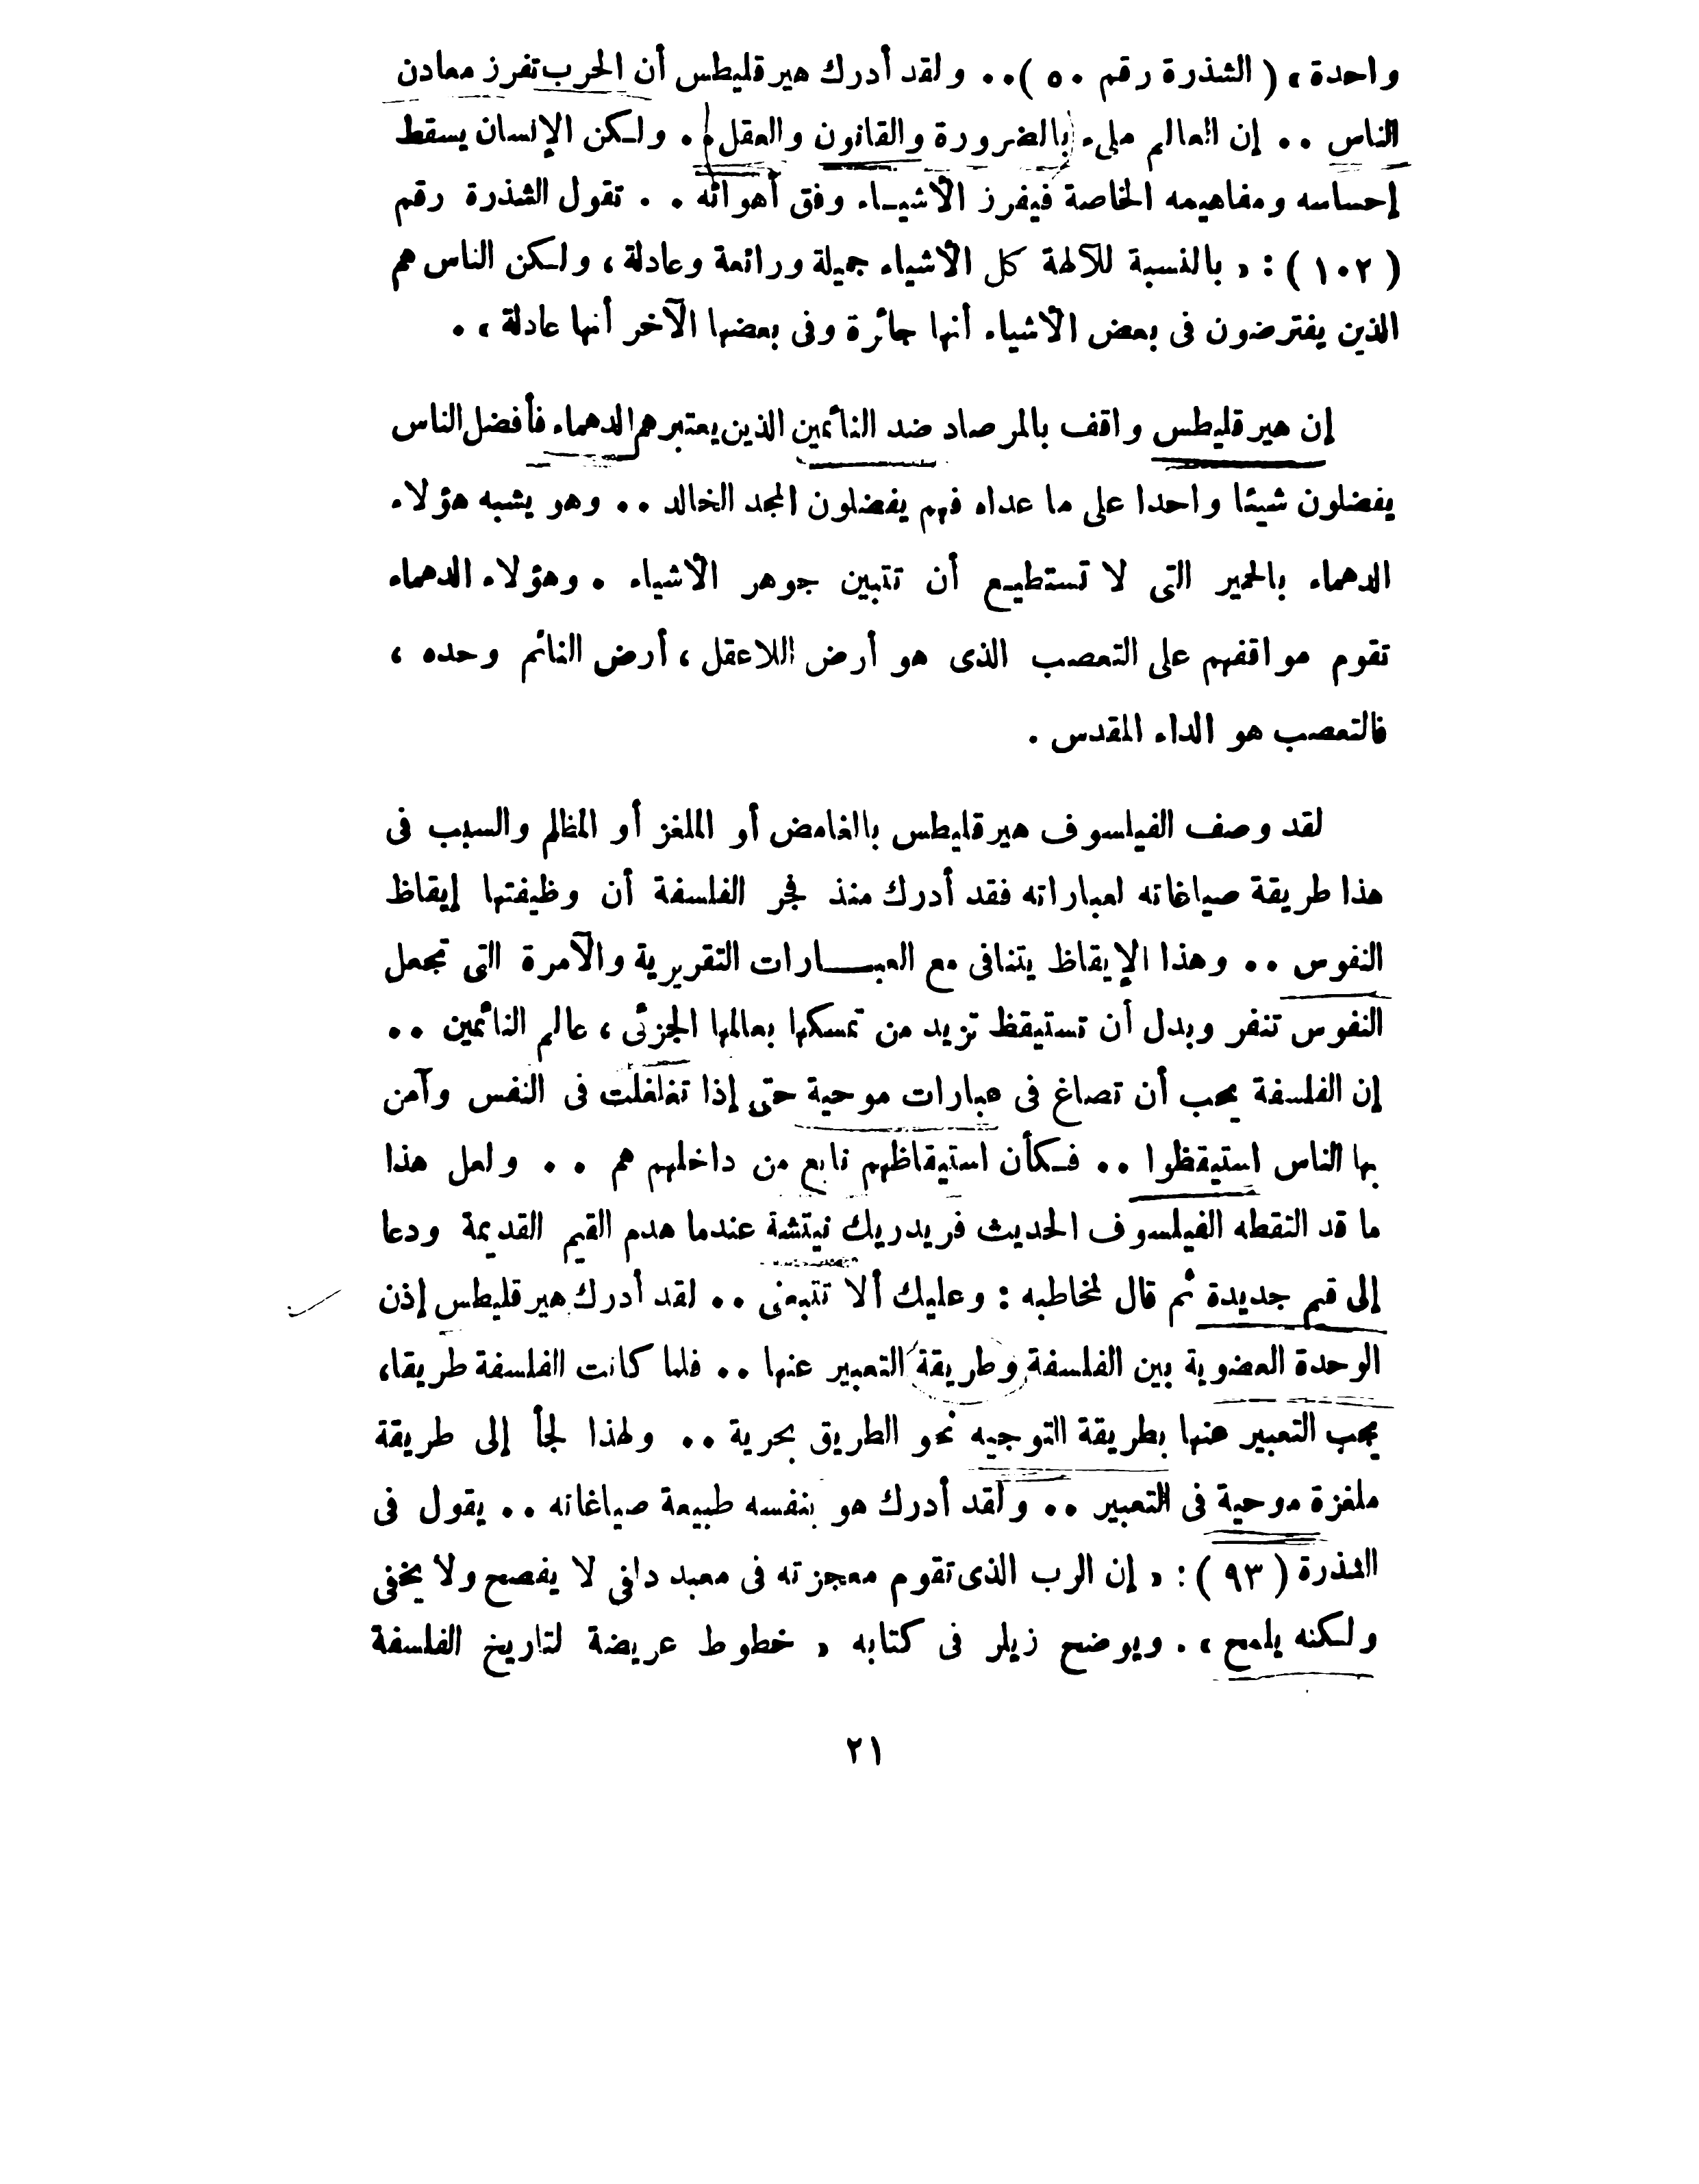 واحدة ، ( الشذرة رقم ٥٠ ) . . ولقد أدرك هيرقليطس أن الحرب تفرز معادن
الناس . . إن العالم ملىء بالضرورة والقانون والعقل . . ولكن الإنسان يسقط
إحساسه ومفاهيمه الخاصة فيفرز الأشياء وفق أهوائه . . تقول الشذرة رقم
( ١٠٢ ) : « بالنسبة للآلهة كل الأشياء جميلة ورائعة وعادلة ، ولكن الناس هم
الذين يفترضون فى بعض الأشياء أنها جائرة وفى بعضها الآخر أنها عادلة » .
إن هيرقليطس واقف بالمرصاد ضد النائمين الذين يعتبرهم الدهماء فأفضل الناس
يفضلون شيئا واحدا على ما عداه فهم يفضلون المجد الخالد . . وهو يشبه هؤلاء
الدهماء بالحمير التى لا تستطيع أن تتبين جوهر الأشياء . وهؤلاء الدهماء
تقوم مواقفهم على التعصب الذى هو أرض اللاعقل ، أرض النائم وحده ،
فالتعصب هو الداء المقدس .
لقد وصف الفيلسوف هيرقليطس بالغامض أو الملغز أو المظلم والسبب فى
هذا طريقة صياغاته لعباراته فقد أدرك منذ فجر الفلسفة أن وظيفتها إيقاظ
النفوس . . وهذا الإيقاظ يتنافى مع العبارات التقريرية والآمرة التى تجعل
النفوس تنفر وبدل أن تستيقظ تزيد من تمسكها بعالمها الجزئى ، عالم النائمين . .
إن الفلسفة يجب أن تصاغ فى عبارات موحية حتى إذا تغلغلت فى النفس وآمن
بها الناس استيقظوا . . فكأن استيقاظهم نابع من داخلهم هم . . ولعل هذا
ما قد التقطه الفيلسوف الحديث فريدريك نيتشة عندما هدم القيم القديمة ودعا
إلى قيم جديدة ثم قال لمخاطبه : وعليك ألا تتبعنى . . لقد أدرك هيرقليطس إذن
الوحدة العضوية بين الفلسفة وطريقة التعبير عنها . . فلما كانت الفلسفة طريقا ،
يجب التعبير عنها بطريقة التوجيه نحو الطريق بحرية . . ولهذا لجأ إلى طريقة
ملغزة موحية فى التعبير . . ولقد أدرك هو بنفسه طبيعة صياغاته . . يقول فى
الشذرة ( ٩٣ ) : « إن الرب الذى تقوم معجزته فى معبد دلفى لا يفصح ولا يخفى
ولكنه يلمح » . ويوضح زيلر فى كتابه « خطوط عريضة لتاريخ الفلسفة
٢١